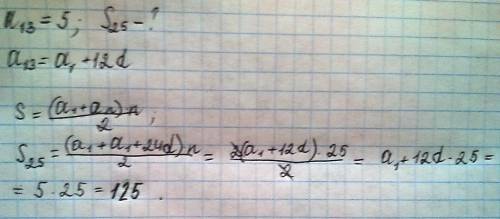 a₁₃ = 5; S₂₅ - ?
a₁₃ = a₁ + 12d
S = (a₁ + aₙ) · n / 2 ;
S₂₅ = (a₁ + a₁ + 24d) · n / 2 = 2(a₁ + 12d) · 25 / 2 = a₁ + 12d · 25 =
= 5 · 25 = 125 .